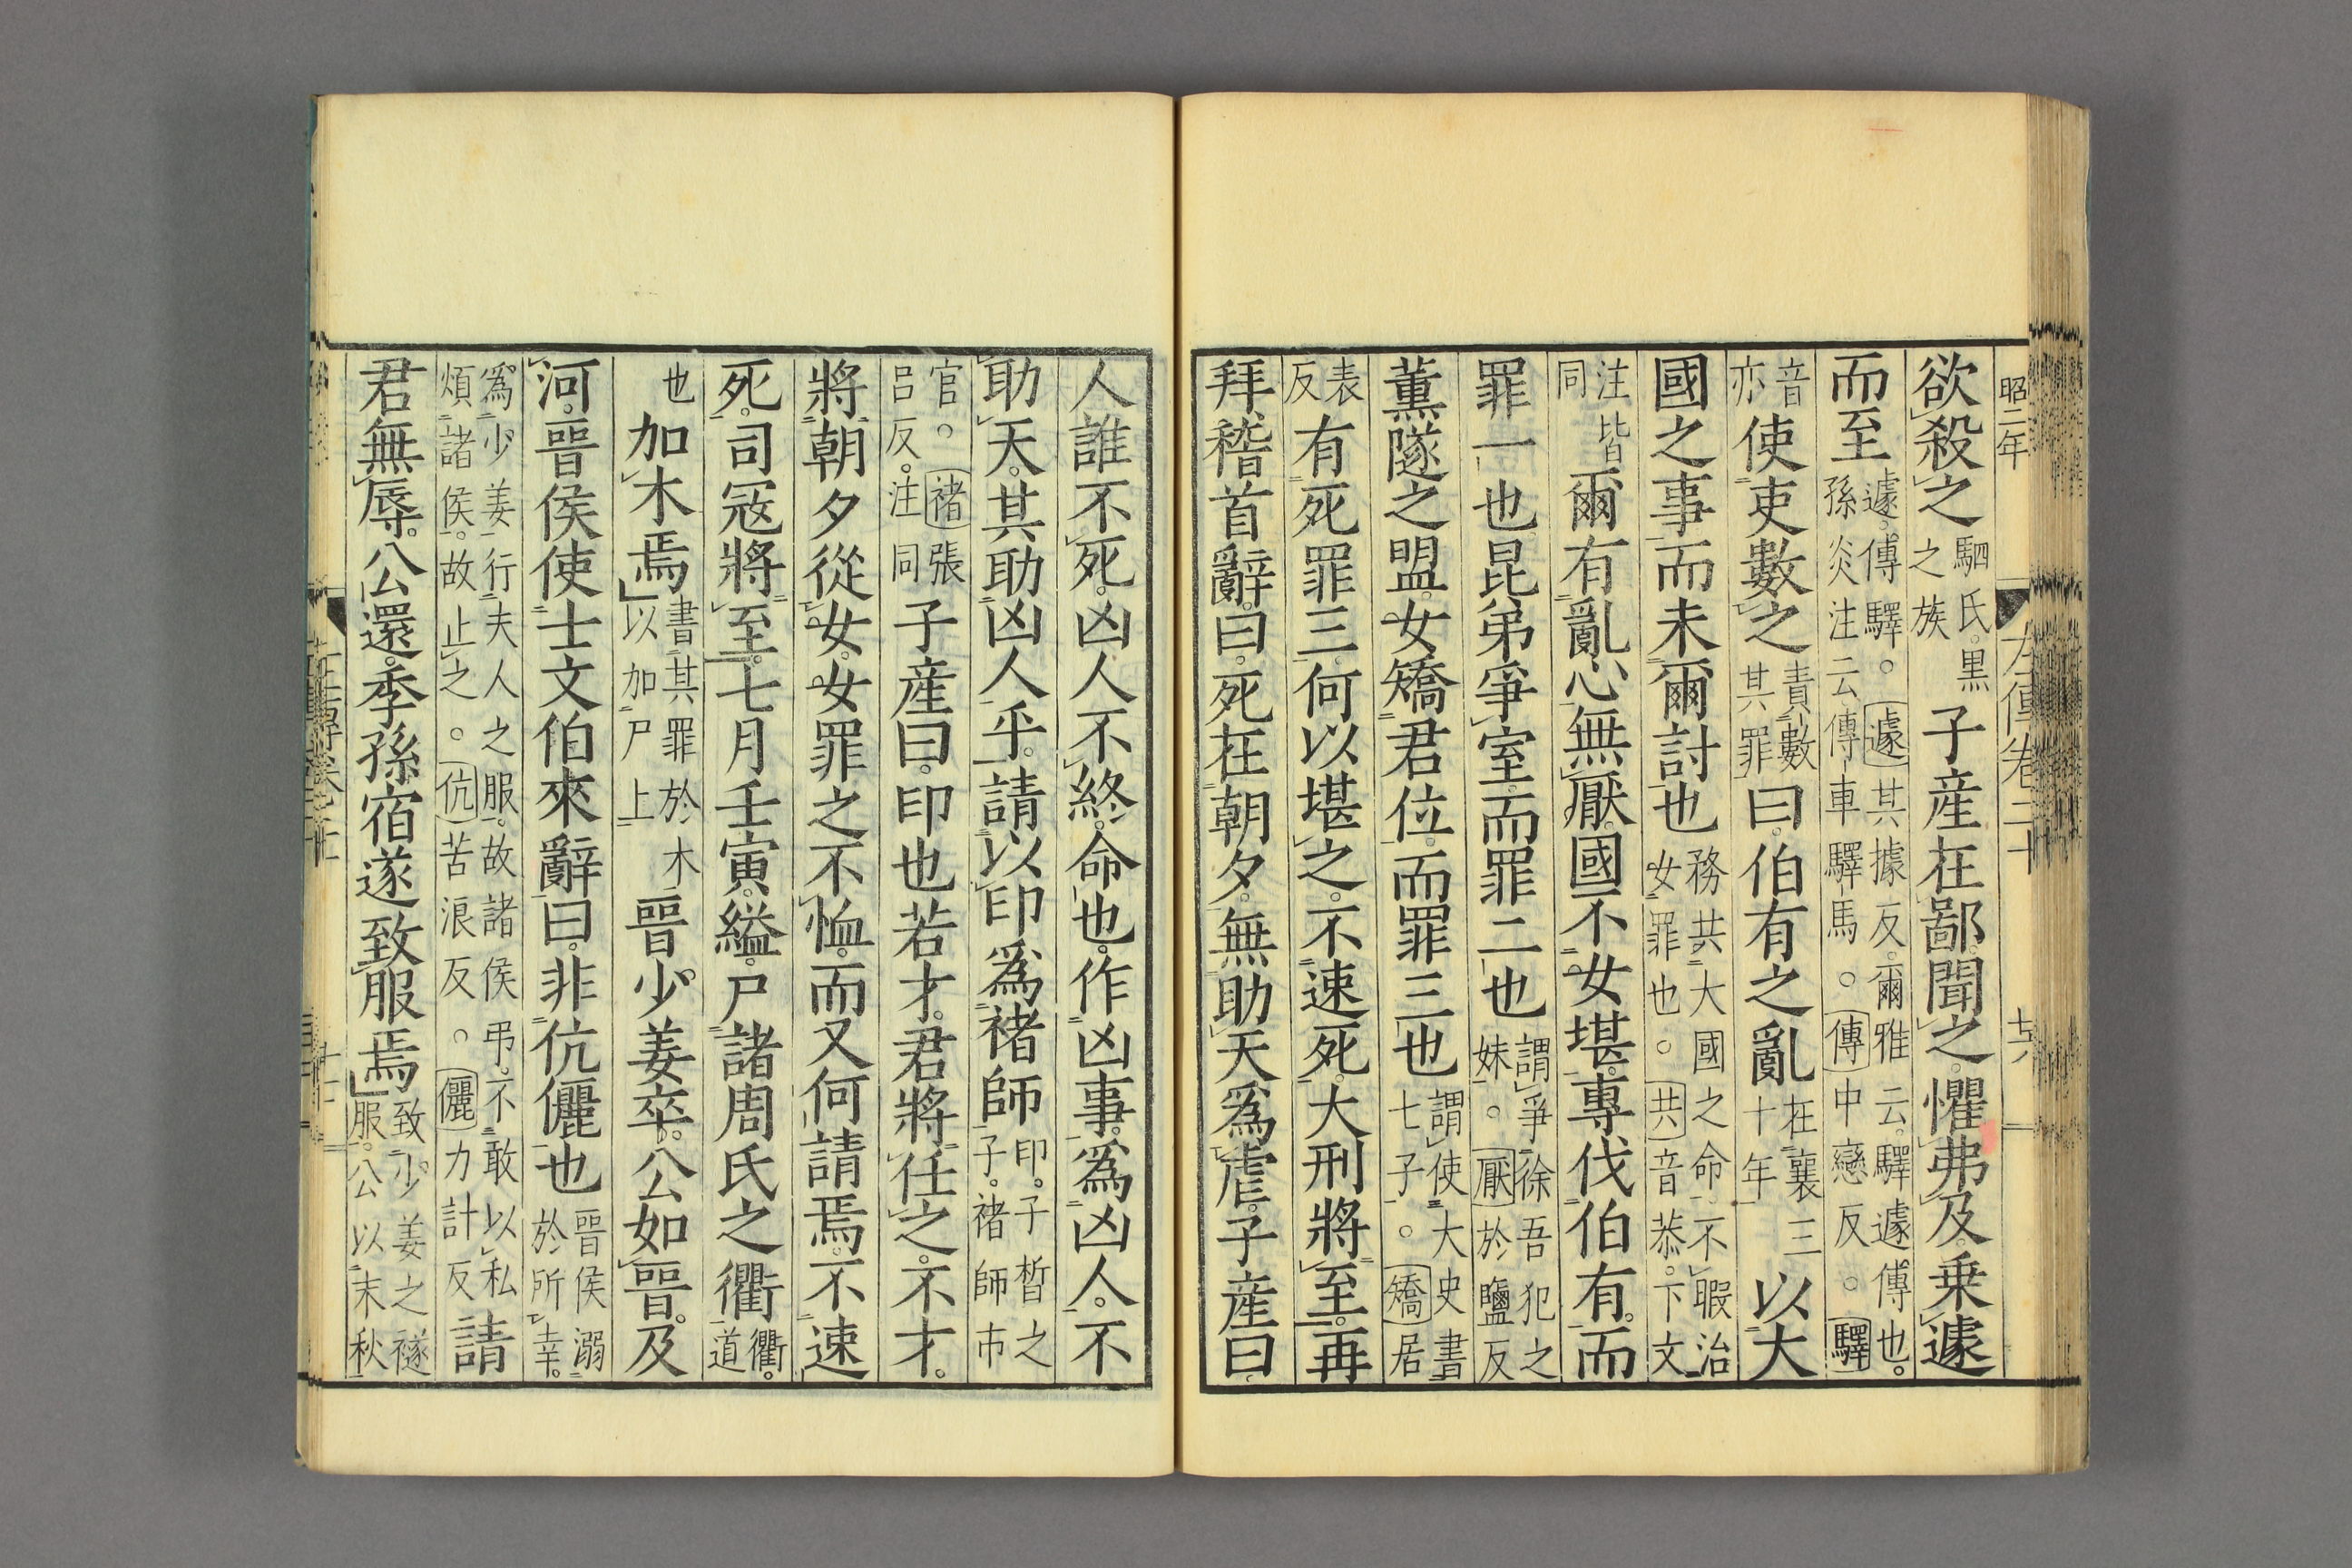 昭二年
左傳卷二十
欲殺之駟氏。黑之族子産在鄙。聞之。懼弗及。乗遽
而至遽。傳驛。○遽其據反。爾雅云。驛遽傳也。孫炎注云。傳車驛馬。○傳中戀反。○驛
音亦使吏數之責數其罪曰。伯有之亂在襄三十年以大
國之事。而未爾討也務共大國之命。不暇治女罪也。○共音恭。下文
注皆同爾有亂心無厭。國不女堪。專伐伯有。而
罪一也。昆弟爭室。而罪二也謂爭徐吾犯之妹。○厭於鹽反
薫隧之盟。女矯君位。而罪三也謂使大史書七子。○矯居
表反有死罪三。何以堪之。不速死。大刑將至。再
拜稽首辭曰。死在朝夕。無助天爲虐。子産曰。
人誰不死。凶人不終。命也。作凶事。爲凶人。不
助天。其助凶人乎。請以印爲褚師印。子晳之子。褚師市
官。○褚張呂反。注同子産曰。印也若才。君將任之。不才。
將朝夕從女。女罪之不恤。而又何請焉。不速
死。司冦將至。七月壬寅。縊。尸諸周氏之衢衢。道
也加木焉書其罪於木以加尸上晉少姜卒。公如晉。及
河。晉侯使士文伯來辭曰。非伉儷也晉侯溺於所幸。
爲少姜行夫人之服。故諸侯弔。不敢以私煩諸侯。故止之。○伉苦浪反。○儷力計反請
君無辱。公還。季孫宿遂致服焉致少姜之襚服。公以末秋